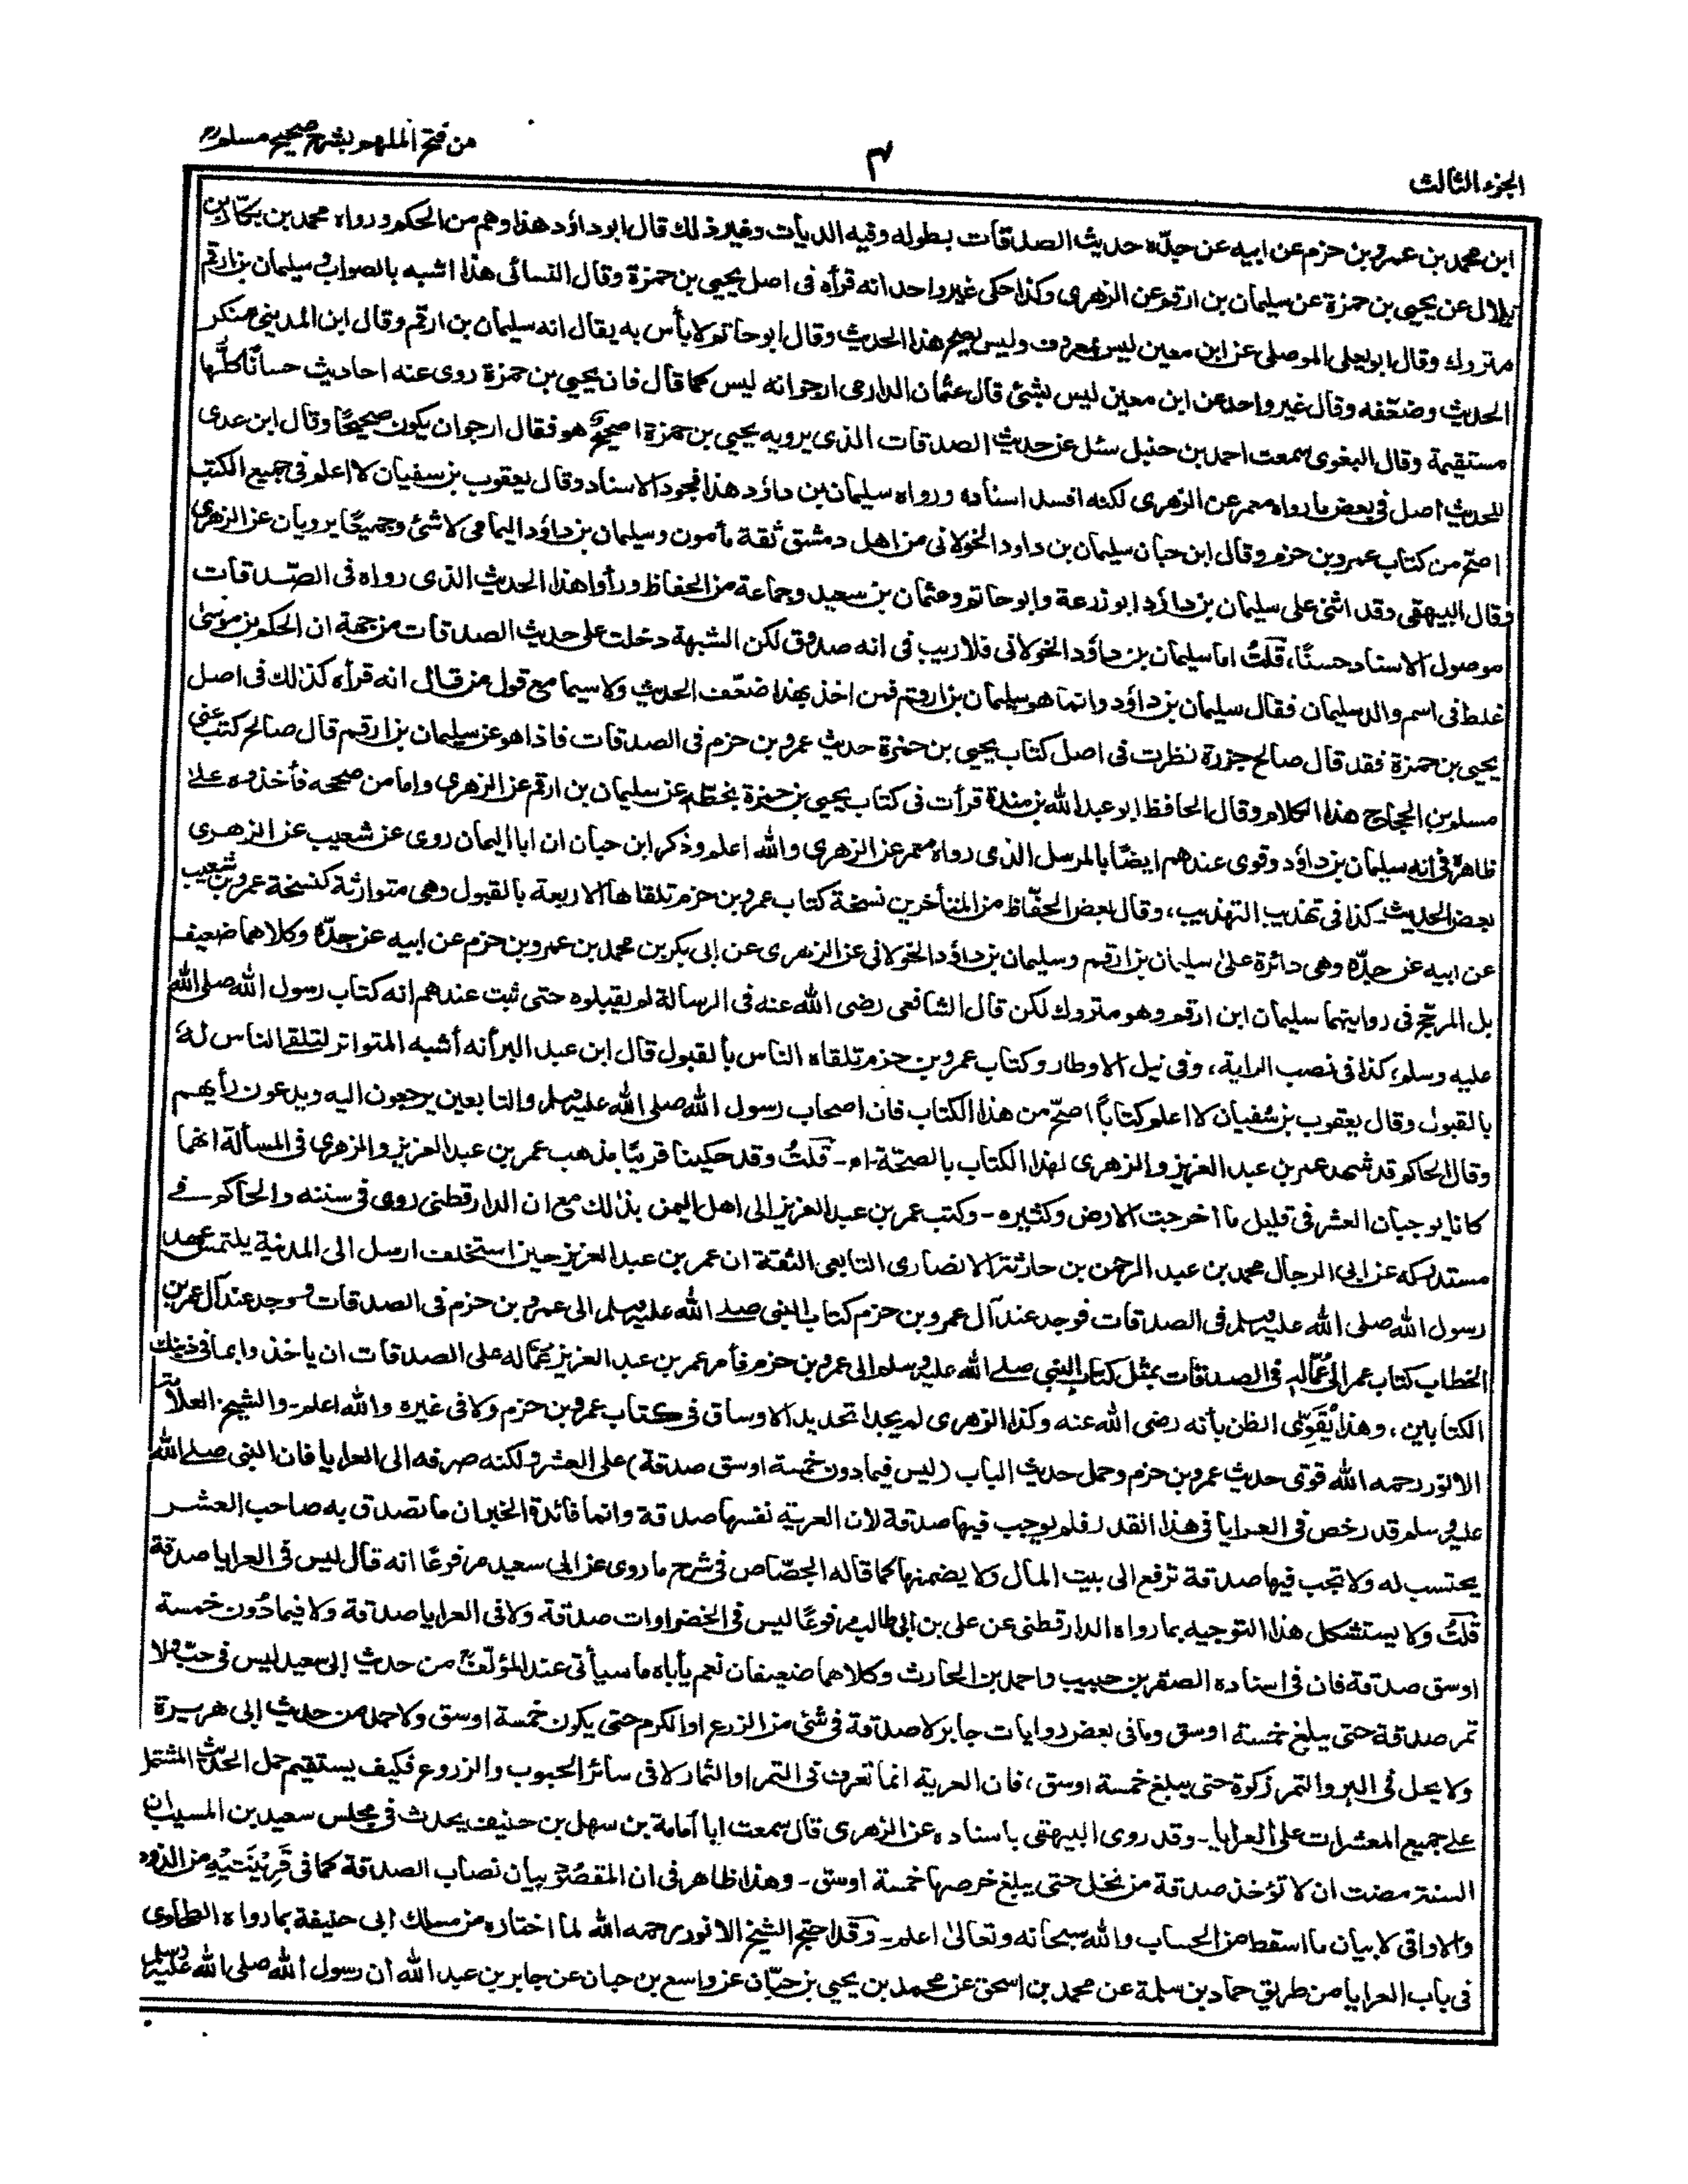 الجزء الثالث
٣
من فتح الملهم بشرح صحيح مسلم
ابن محمد بن عمرو بن حزم عن ابيه عن جدّه حديث الصدقات بطوله وفيه الديات وغير ذلك قال ابو داؤد هذا وهم من الحكم ورواه محمد بن بكّار بن
بلال عن يحيى بن حمزة عن سليمان بن ارقم عن الزهرى وكذا حكى غير واحد انه قرأه فى اصل يحيى بن حمزة وقال النسائى هذا اشبه بالصواب وسليمان بن ارقم
متروك وقال ابو يعلى الموصلى عن ابن معين ليس بمعروف وليس يصح هذا الحديث وقال ابو حاتم لا بأس به يقال انه سليمان بن ارقم وقال ابن المدينى منكر
الحديث وضعّفه وقال غير واحد عن ابن معين ليس بشئ قال عثمان الدارمى ارجو انه ليس كما قال فان يحيى بن حمزة روى عنه احاديث حسانًا كلّها
مستقيمة وقال البغوى سمعت احمد بن حنبل سئل عن حديث الصدقات الذى يرويه يحيى بن حمزة اصحيح هو فقال ارجو ان يكون صحيحًا وقال ابن عدى
للحديث اصل فى بعض ما رواه معمر عن الزهرى لكنه افسد اسناده ورواه سليمان بن داؤد هذا فجود الاسناد وقال يعقوب بن سفيان لا اعلم فى جميع الكتب
اصحّ من كتاب عمرو بن حزم وقال ابن حبان سليمان بن داود الخولانى من اهل دمشق ثقة مأمون وسليمان بن داؤد اليمامى لا شئ وجميعًا يرويان عن الزهرى
وقال البيهقى وقد اثنى على سليمان بن داؤد ابو زرعة وابو حاتم وعثمان بن سعيد وجماعة من الحفاظ ورأوا هذا الحديث الذى رواه فى الصّدقات
موصول الاسناد حسنًا، قلتُ اما سليمان بن داؤد الخولانى فلا ريب فى انه صدوق لكن الشبهة دخلت على حديث الصدقات من جهة ان الحكم بن موسىٰ
غلط فى اسم والد سليمان فقال سليمان بن داؤد وانما هو سليمان بن ارقم فمن اخذ بهذا ضعّف الحديث ولا سيما مع قول من قال انه قرأه كذلك فى اصل
يحيى بن حمزة فقد قال صالح جزرة نظرت فى اصل كتاب يحيى بن حمزة حديث عمرو بن حزم فى الصدقات فاذا هو عن سليمان بن ارقم قال صالح كتب عنى
مسلم بن الحجاج هذا الكلام وقال الحافظ ابو عبد الله بن مندة قرأت فى كتاب يحيى بن حمزة بخطّه عن سليمان بن ارقم عن الزهرى واما من صححه فأخذوه على
ظاهره فى انه سليمان بن داؤد وقوى عندهم ايضًا بالمرسل الذى رواه معمر عن الزهرى والله اعلم وذكر ابن حبان ان ابا اليمان روى عن شعيب عن الزهرى
بعض الحديث - كذا فى تهذيب التهذيب، وقال بعض الحفّاظ من المتأخرين نسخة كتاب عمرو بن حزم تلقاها الاربعة بالقبول وهى متوارثة كنسخة عمرو بن شعيب
عن ابيه عن جدّه وهى دائرة علىٰ سليمان بن ارقم وسليمان بن داؤد الخولانى عن الزهرى عن ابى بكر بن محمد بن عمرو بن حزم عن ابيه عن جدّه وكلاهما ضعيف
بل المرجّح فى روايتهما سليمان ابن ارقم وهو متروك لكن قال الشافعى رضى الله عنه فى الرسالة لم يقبلوه حتى ثبت عندهم انه كتاب رسول الله صلى الله
عليه وسلم، كذا فى نصب الراية، وفى نيل الاوطار وكتاب عمرو بن حزم تلقاه الناس بالقبول قال ابن عبد البر أنه أشبه المتواتر لتلقى الناس له
بالقبول وقال يعقوب بن سُفيان لا اعلم كتاباً اصحّ من هذا الكتاب فان اصحاب رسول الله صلى الله عليه وسلم والتابعين يرجعون اليه ويدعون رأيهم
وقال الحاكم قد شهد عمر بن عبد العزيز والزهرى لهذا الكتاب بالصحّة - اه - قلتُ وقد حكينا قريبًا مذهب عمر بن عبد العزيز والزهرى فى المسألة انهما
كانا يوجبان العشر فى قليل ما اخرجت الارض وكثيره - وكتب عمر بن عبد العزيز الى اهل اليمن بذلك مع ان الدارقطنى روى فى سننه والحاكم فى
مستدركه عن ابى الرجال محمد بن عبد الرحمٰن بن حارثة الانصارى التابعى الثقة ان عمر بن عبد العزيز حين استخلف ارسل الى المدينة يلتمس عهد
رسول الله صلى الله عليه وسلم فى الصدقات فوجد عند آل عمرو بن حزم كتاب النبى صلى الله عليه وسلم الى عمرو بن حزم فى الصدقات ووجد عند آل عمر بن
الخطاب كتاب عمر الىٰ عُمّاله فى الصدقات بمثل كتاب النبى صلى الله عليه وسلم الى عمرو بن حزم فأمر عمر بن عبد العزيز عماله على الصدقات ان ياخذوا بما فى ذينك
الكتابين، وهذا يُقَوِّى الظن بأنه رضى الله عنه وكذا الزهرى لم يجدا تحديد الاوساق فى كتاب عمرو بن حزم ولا فى غيره والله اعلم - والشيخ العلامة
الانور رحمه الله قوّى حديث عمرو بن حزم وحمل حديث الباب (ليس فيما دون خمسة اوسق صدقة) على العشر ولكنه صرفه الى العرايا فان النبى صلى الله
عليه وسلم قد رخص فى العرايا فى هذا القدر فلم يوجب فيها صدقة لان العرية نفسها صدقة وانما فائدة الخبر ان ما تصدق به صاحب العشر
يحتسب له ولا تجب فيها صدقة ترفع الى بيت المال ولا يضمنها كما قاله الجصّاص فى شرح ما روى عن ابى سعيد مرفوعًا انه قال ليس فى العرايا صدقة
قلتُ ولا يستشكل هذا التوجيه بما رواه الدارقطنى عن على بن ابى طالب مرفوعًا ليس فى الخضراوات صدقة ولا فى العرايا صدقة ولا فيما دُون خمسة
اوسق صدقة فان فى اسناده الصقر بن حبيب واحمد بن الحارث وكلاهما ضعيفان نعم يأباه ما سيأتى عند المؤلف من حديث ابى سعيد ليس فى حبّ ولا
تمر صدقة حتى يبلغ خمسة اوسق وما فى بعض روايات جابر لا صدقة فى شئ من الزرع او الكرم حتى يكون خمسة اوسق ولاحمد من حديث ابى هريرة
ولا يحل فى البر والتمر زكوة حتى يبلغ خمسة اوسق، فان العرية انما تعرف فى التمر او الثمار لا فى سائر الحبوب والزروع فكيف يستقيم حمل الحديث المشتمل
على جميع المعشرات على العرايا - وقد روى البيهقى باسناده عن الزهرى قال سمعت ابا أمامة بن سهل بن حنيف يحدث فى مجلس سعيد بن المسيب ان
السنة مضت ان لا تؤخذ صدقة من نخل حتى يبلغ خرصها خمسة اوسق - وهذا ظاهر فى ان المقصود بيان نصاب الصدقة كما فى قَرِيْنَتَيْهِ من الذود
والاواقى لا بيان ما اسقط من الحساب والله سبحانه وتعالىٰ اعلم - وقد احتج الشيخ الانور رحمه الله لما اختاره من مسلك ابى حنيفة بما رواه الطحاوى
فى باب العرايا من طريق حماد بن سلمة عن محمد بن اسحق عن محمد بن يحيى بن حبّان عن واسع بن حبان عن جابر بن عبد الله ان رسول الله صلى الله عليه وسلم